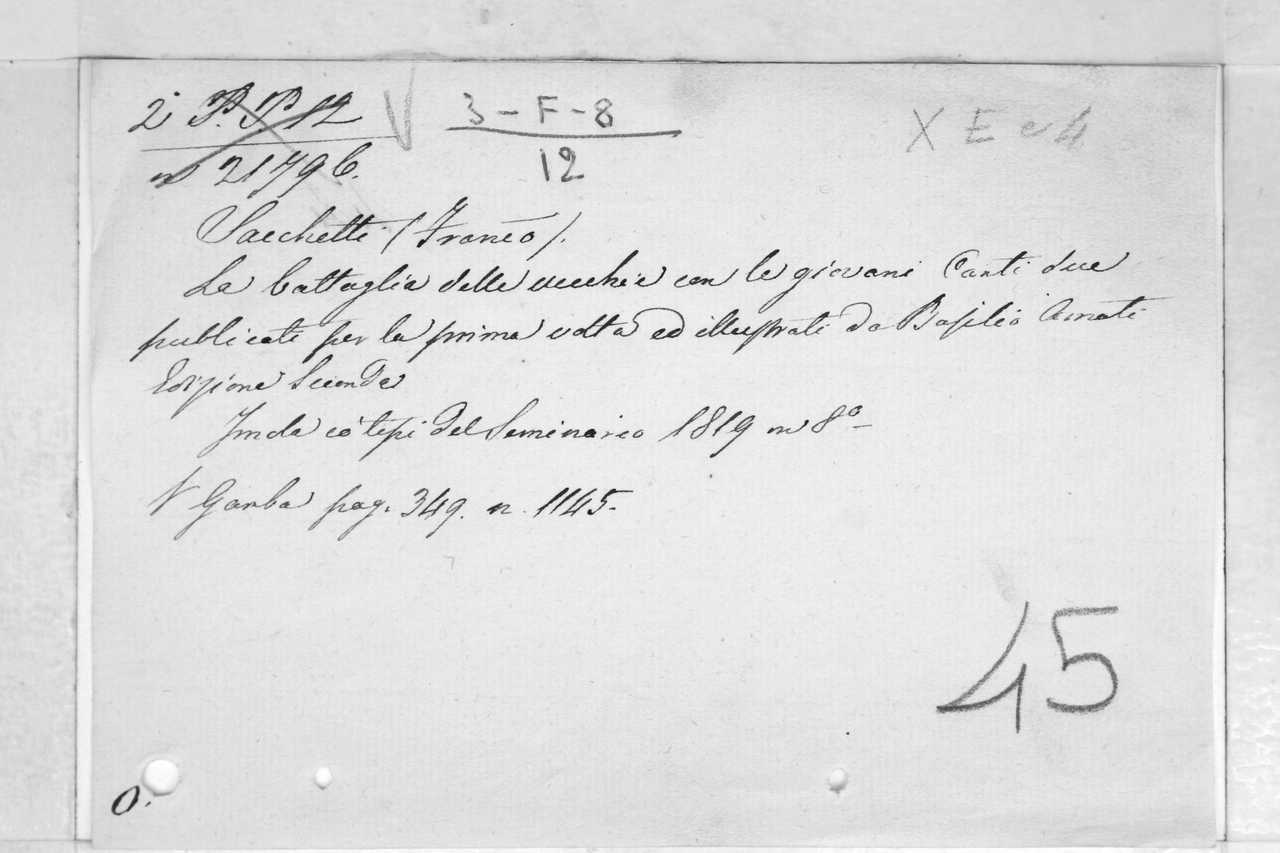 2ª P. P. 12 V 3-F-8 X E e 4
n 21796. 12
Sacchetti (Franco).
La battaglia delle vecchie con le giovani Canti due
publicati per la prima volta ed illustrati da Basilio Amati
Edizione Seconda
Imola co' tipi del Seminario 1819 in 8º
V Gamba pag. 349. n. 1145.
45
O.